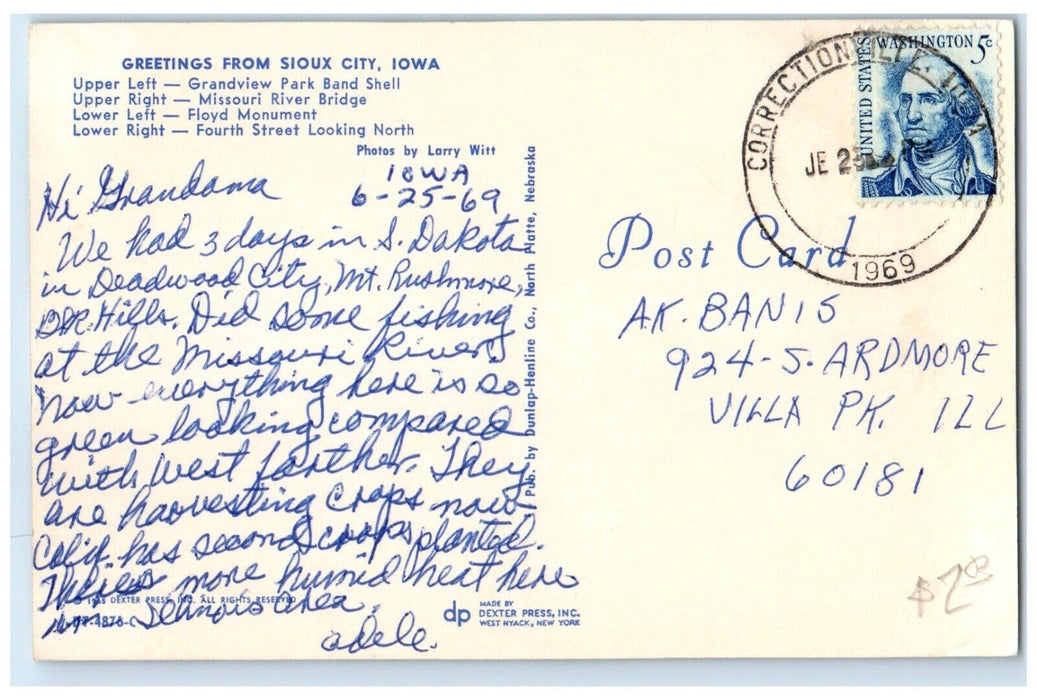 GREETINGS FROM SIOUX CITY, IOWA
Upper Left — Grandview Park Band Shell
Upper Right — Missouri River Bridge
Lower Left — Floyd Monument
Lower Right — Fourth Street Looking North
Photos by Larry Witt
IOWA
6-25-69
Hi Grandama
We had 3 days in S. Dakota
in Deadwood City, Mt. Rushmore,
Blk. Hills. Did some fishing
at the Missouri River.
Now everything here is so
green looking compared
with West farther. They
are harvesting crops now
Calif. has second crops planted.
There's more humid heat here
Illinois area.
adele.
© DEXTER PRESS, INC. ALL RIGHTS RESERVED
4876-C
dp
MADE BY
DEXTER PRESS, INC.
WEST NYACK, NEW YORK
Pub. by Dunlap-Henline Co., North Platte, Nebraska
CORRECTIONVILLE, IOWA
1969
UNITED STATES
WASHINGTON 5c
Post Card
A.K. BANIS
924-S. ARDMORE
VILLA PK. ILL
60181
$2.00